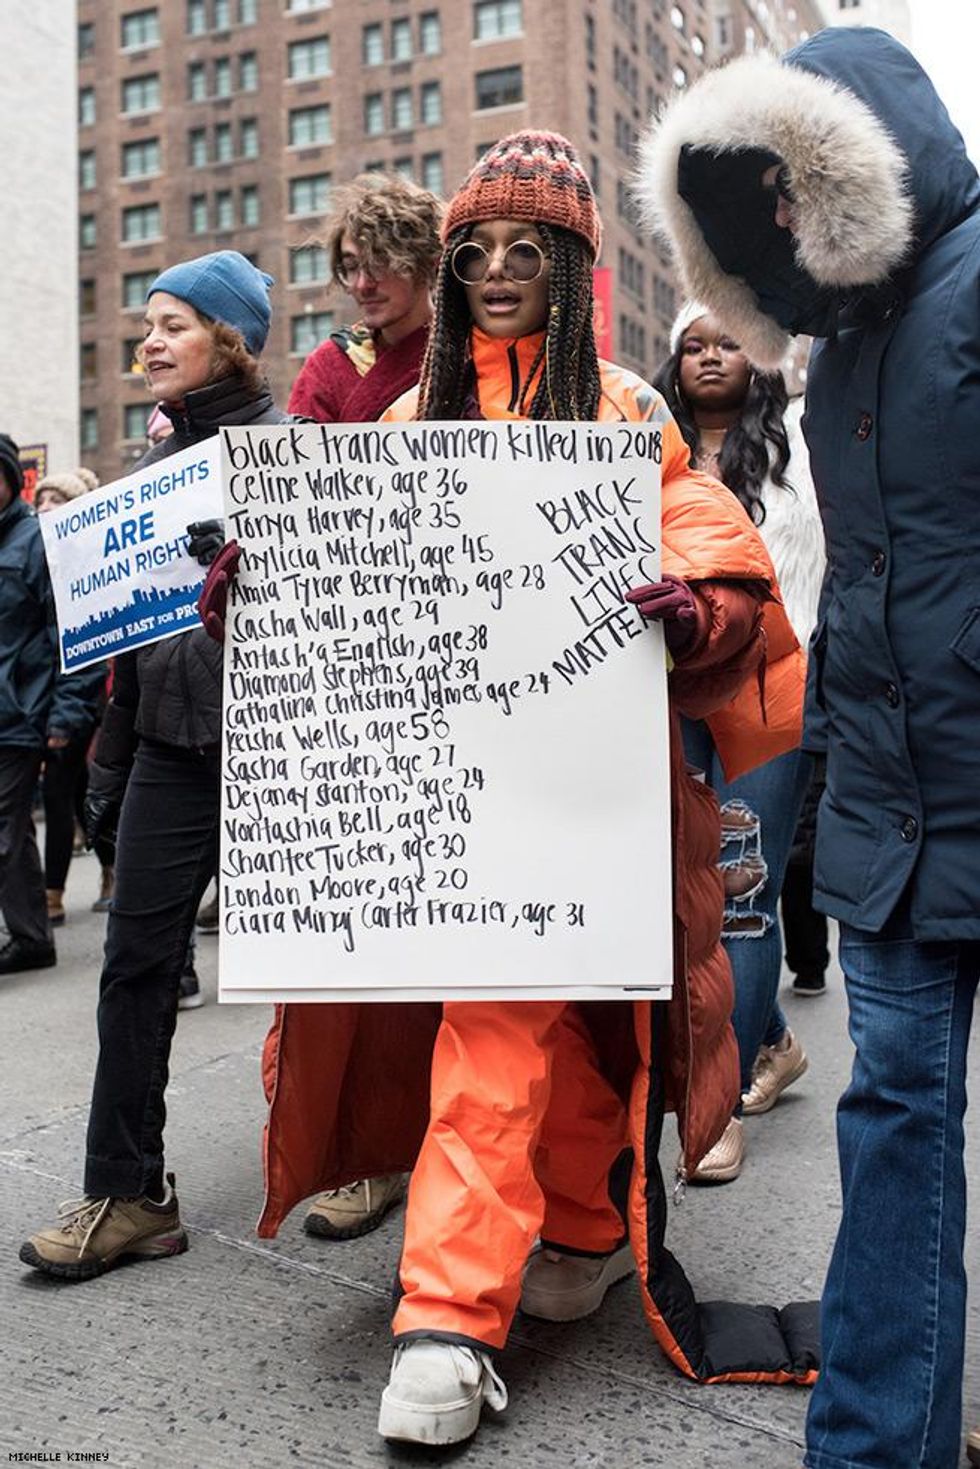 black trans women killed in 2018
Celine Walker, age 36
Tonya Harvey, age 35
Phylicia Mitchell, age 45
Amia Tyrae Berryman, age 28
Sasha Wall, age 29
Antash'a English, age 38
Diamond Stephens, age 39
Cathalina Christina James, age 24
Keisha Wells, age 58
Sasha Garden, age 27
Dejanay Stanton, age 24
Vontashia Bell, age 18
Shantee Tucker, age 30
London Moore, age 20
Ciara Minaj Carter Frazier, age 31
BLACK
TRANS
LIVES
MATTER
WOMEN'S RIGHTS
ARE
HUMAN RIGHT
DOWNTOWN EAST FOR PRO
MICHELLE KINNEY